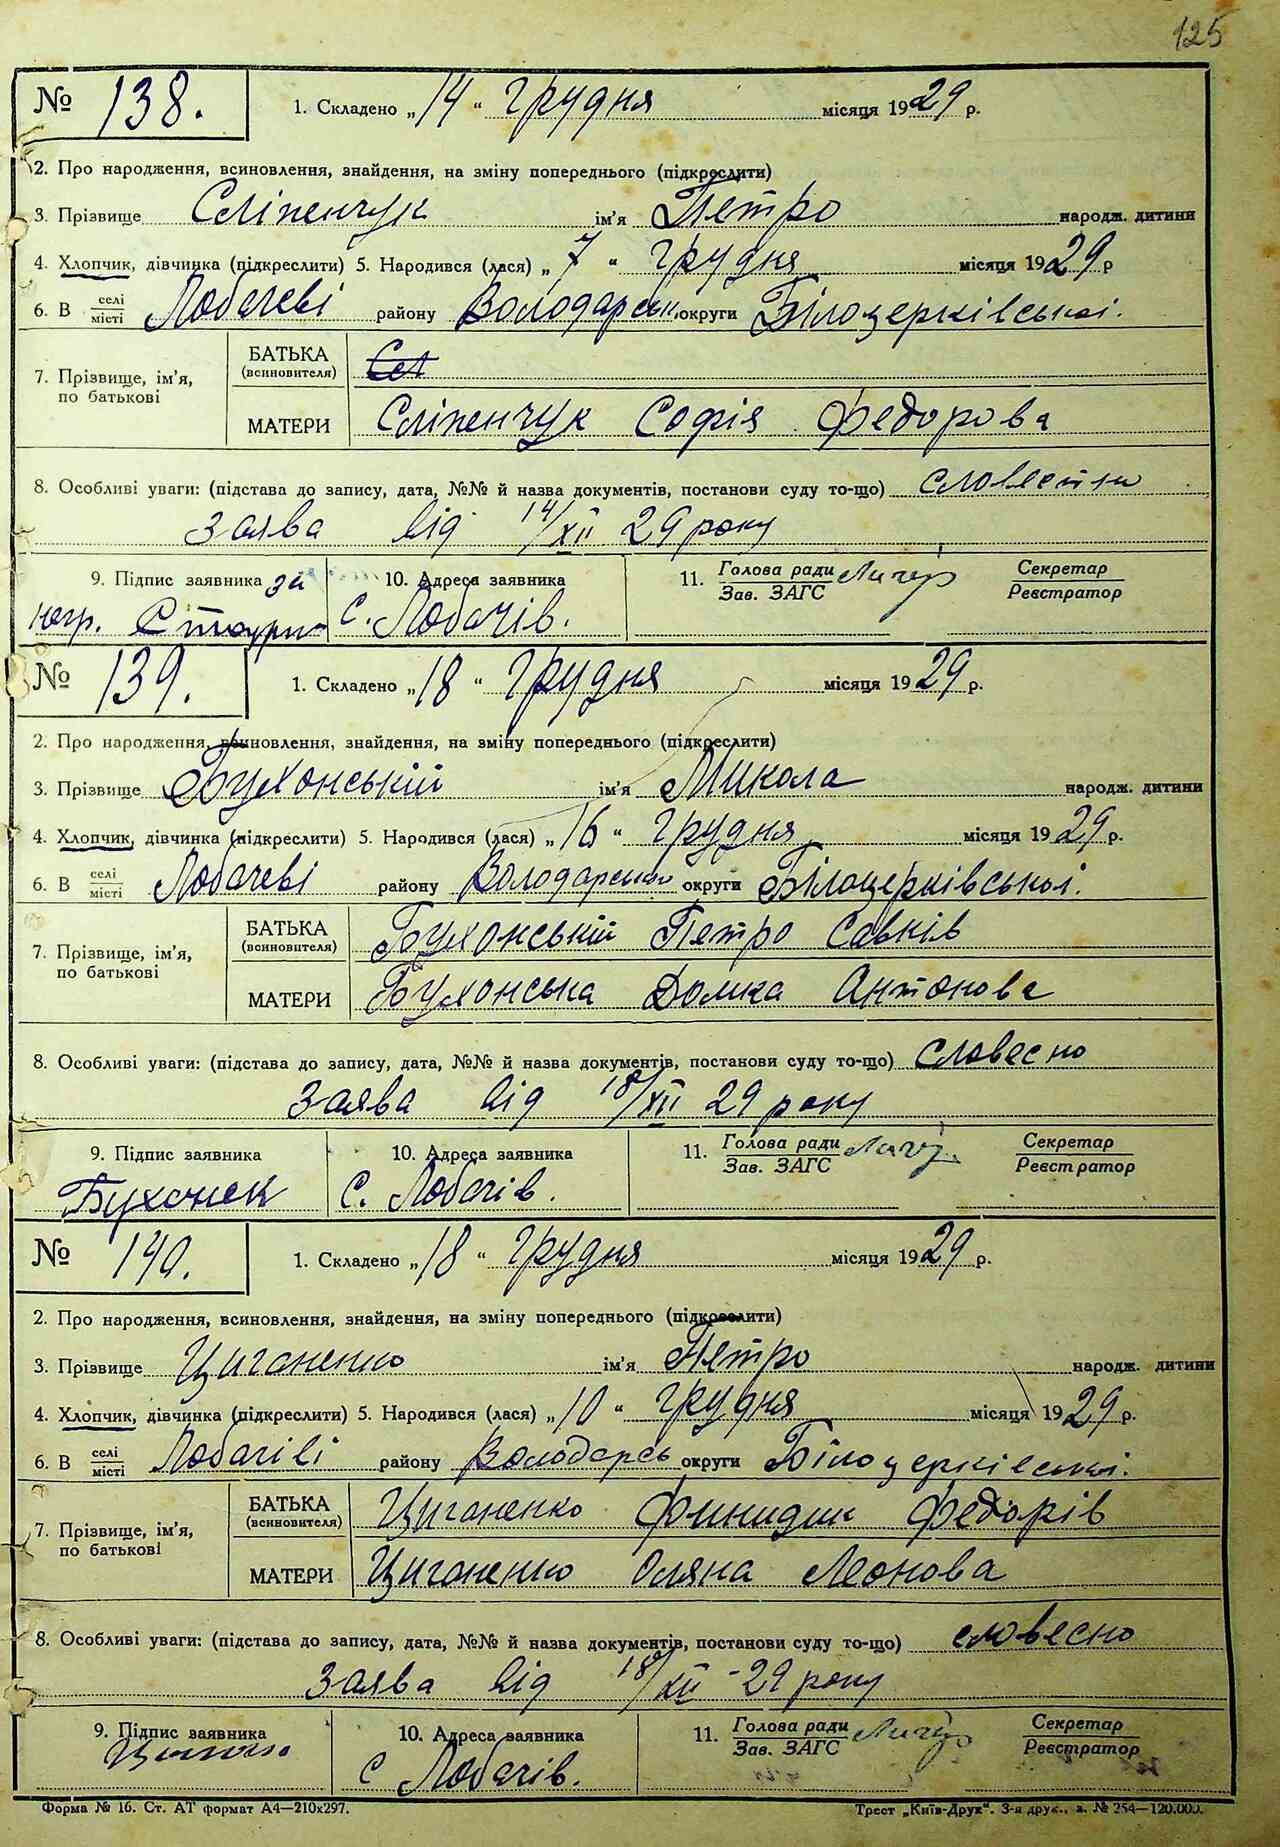 125
№ 138. 1. Складено „14“ грудня місяця 1929 р.
2. Про народження, всиновлення, знайдення, на зміну попереднього (підкреслити)
3. Прізвище Сліпенчук ім'я Петро народж. дитини
4. Хлопчик, дівчинка (підкреслити) 5. Народився (лася) „7“ грудня місяця 1929 р
6. В селі/місті Лобачеві району Володарськ. округи Білоцерківської.
7. Прізвище, ім'я, по батькові БАТЬКА (всиновителя) Сл
МАТЕРИ Сліпенчук Софія Федорова
8. Особливі уваги: (підстава до запису, дата, №№ й назва документів, постанови суду то-що)
заява від 14/XII 29 року
9. Підпис заявника за 10. Адреса заявника 11. Голова ради/Зав. ЗАГС Секретар/Реєстратор
негр. с. Лобачів.
№ 139. 1. Складено „18“ грудня місяця 1929 р.
2. Про народження, всиновлення, знайдення, на зміну попереднього (підкреслити)
3. Прізвище Бухонський ім'я Микола народж. дитини
4. Хлопчик, дівчинка (підкреслити) 5. Народився (лася) „16“ грудня місяця 1929 р.
6. В селі/місті Лобачеві району Володарськ округи Білоцерківської.
7. Прізвище, ім'я, по батькові БАТЬКА (всиновителя) Бухонський Петро Савків
МАТЕРИ Бухонська Домка Антонова
8. Особливі уваги: (підстава до запису, дата, №№ й назва документів, постанови суду то-що) словесно
заява від 18/XII 29 року
9. Підпис заявника 10. Адреса заявника 11. Голова ради/Зав. ЗАГС Секретар/Реєстратор
Бухонск с. Лобачів.
№ 140. 1. Складено „18“ грудня місяця 1929 р.
2. Про народження, всиновлення, знайдення, на зміну попереднього (підкреслити)
3. Прізвище Циганенко ім'я Петро народж. дитини
4. Хлопчик, дівчинка (підкреслити) 5. Народився (лася) „10“ грудня місяця 1929 р.
6. В селі/місті Лобачіві району Володарсь округи Білоцерківської.
7. Прізвище, ім'я, по батькові БАТЬКА (всиновителя) Циганенко Финидик Федорів
МАТЕРИ Циганенко Оляна Леонова
8. Особливі уваги: (підстава до запису, дата, №№ й назва документів, постанови суду то-що) словесно
заява від 18/XII -29 року
9. Підпис заявника 10. Адреса заявника 11. Голова ради/Зав. ЗАГС Секретар/Реєстратор
с Лобачів.
Форма № 16. Ст. АТ формат А4—210х297. Трест „Київ-Друк“. 3-я друк., з. № 254—120.000.